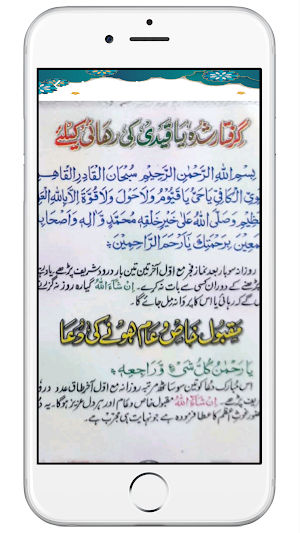 گرفتار شدہ یا قیدی کی رھائی کیلئے
بِسْمِ اللهِ الرَّحْمٰنِ الرَّحِيْمِ سُبْحَانَ الْقَادِرِ الْقَاهِرِ
الْكَافِيْ يَا حَيُّ يَا قَيُّوْمُ وَلَا حَوْلَ وَلَا قُوَّةَ اِلَّا بِاللهِ
وَصَلَّى اللهُ عَلٰى خَيْرِ خَلْقِهٖ مُحَمَّدٍ وَّاٰلِهٖ وَاَصْحَابِهٖ
بِرَحْمَتِكَ يَا اَرْحَمَ الرَّاحِمِيْنَ
روزانہ سو بار بعد نماز فجر مع اوّل آخر تین تین بار درود شریف پڑھے
پڑھنے کے دوران کسی سے بات نہ کرے۔ اِنْ شَآءَ اللّٰہ گیارہ روز نہ گزریں
گے کہ رہائی یا اس کا پروانہ مل جائے گا۔
مقبول خاص و عام ہونے کی دعا
يَا رَحْمٰنُ كُلِّ شَيْءٍ وَّرَاحِمَهٗ
اس مبارک دعا کو تین سو ساٹھ مرتبہ روزانہ مع اوّل آخر طاق عدد درود
پڑھے۔ اِنْ شَآءَ اللّٰہ مقبول خاص و عام اور ہر دل عزیز ہوگا۔ یہ
حضور غوث اعظم کا عطا فرمودہ ہے جو نہایت ہی مجرب ہے۔